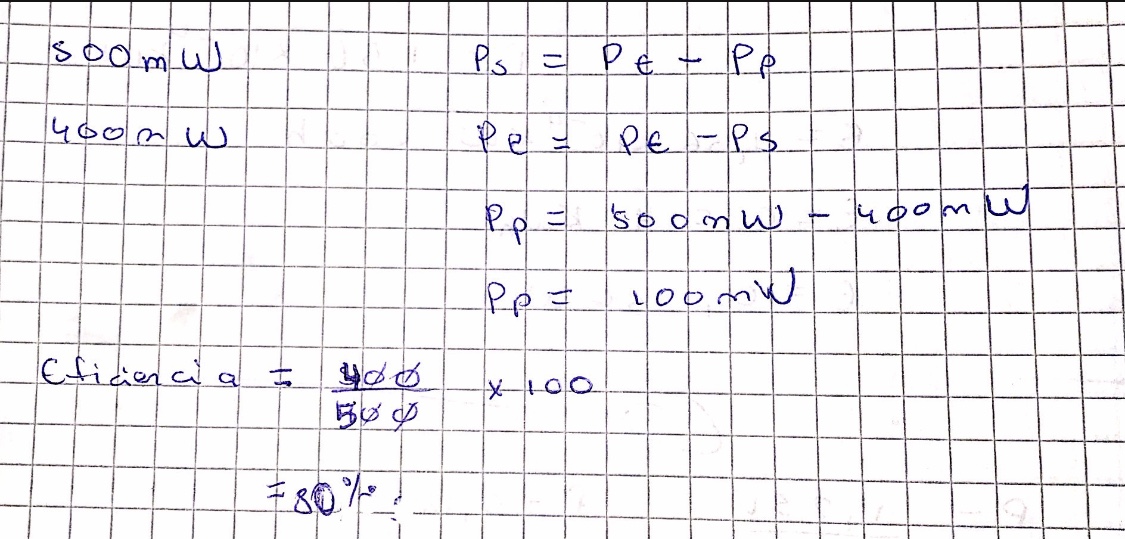 500mW Ps = Pt - Pp
400mW Pe = Pt - Ps
Pp = 500mW - 400mW
Pp = 100mW
Eficiencia = 400/500 x 100
= 80%